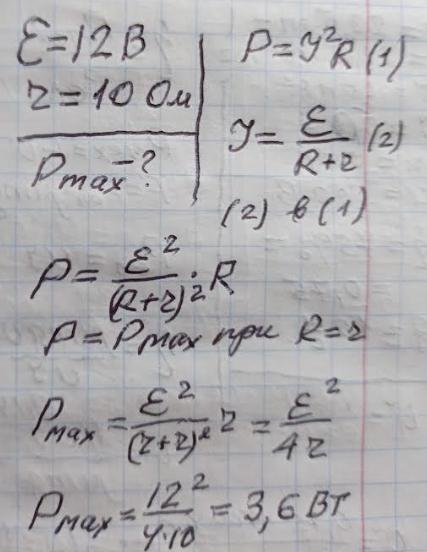 ℰ=12В
r=10 Ом
Pmax-?
P=J²R (1)
J=ℰ/(R+r) (2)
(2) в (1)
P=ℰ²/(R+r)²·R
P=Pmax при R=r
Pmax=ℰ²/(r+r)² r=ℰ²/4r
Pmax=12²/4·10=3,6 Вт